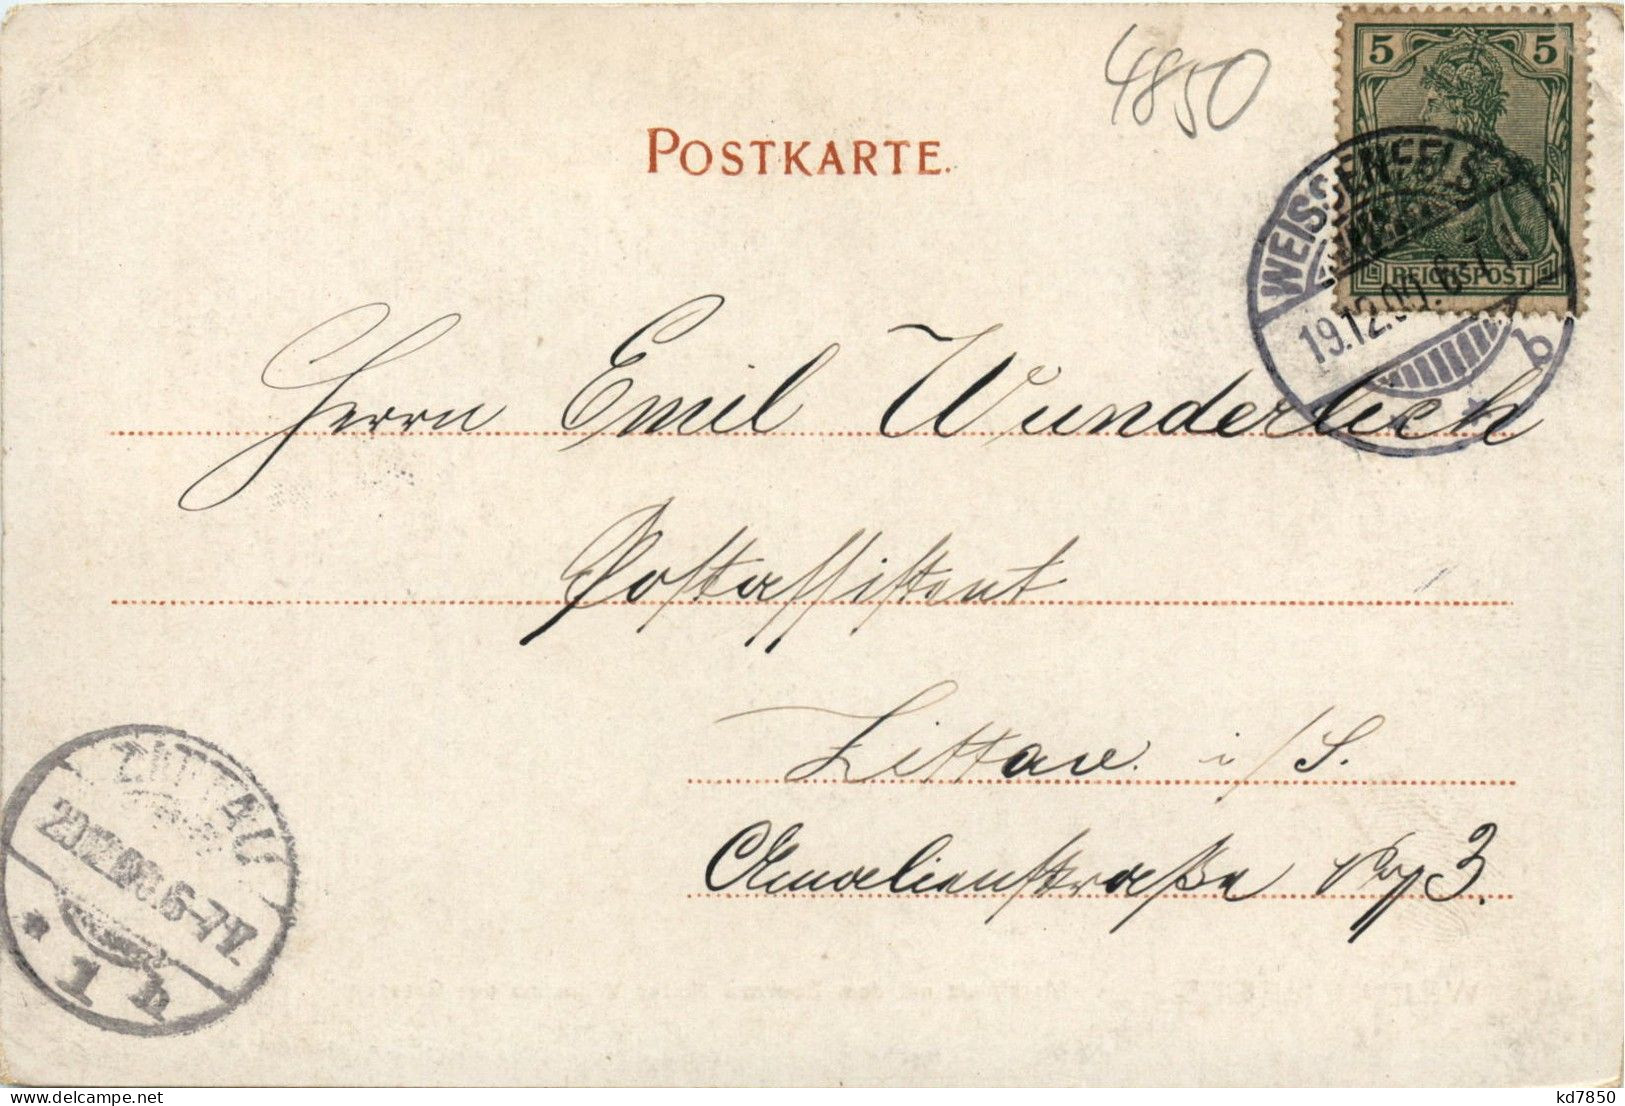 4850
POSTKARTE.
5 5
REICHSPOST
WEISSENFELS
19.12.00. 6-7 N
b
Herrn Emil Wunderlich
Postassistent
Zittau i/S.
Amalienstraße No 3.
ZITTAU
20.12.00. 6-7 V.
* 1 b
delcampe.net
kd7850